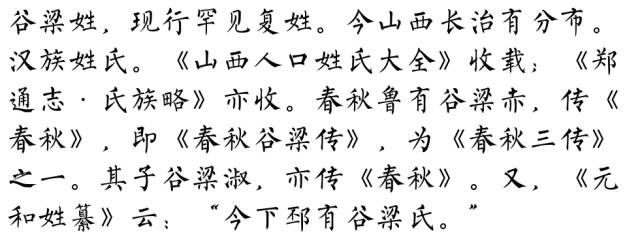 谷梁姓，现行罕见复姓。今山西长治有分布。
汉族姓氏。《山西人口姓氏大全》收载；《郑
通志·氏族略》亦收。春秋鲁有谷梁赤，传《
春秋》，即《春秋谷梁传》，为《春秋三传》
之一。其子谷梁淑，亦传《春秋》。又，《元
和姓纂》云：“今下邳有谷梁氏。”